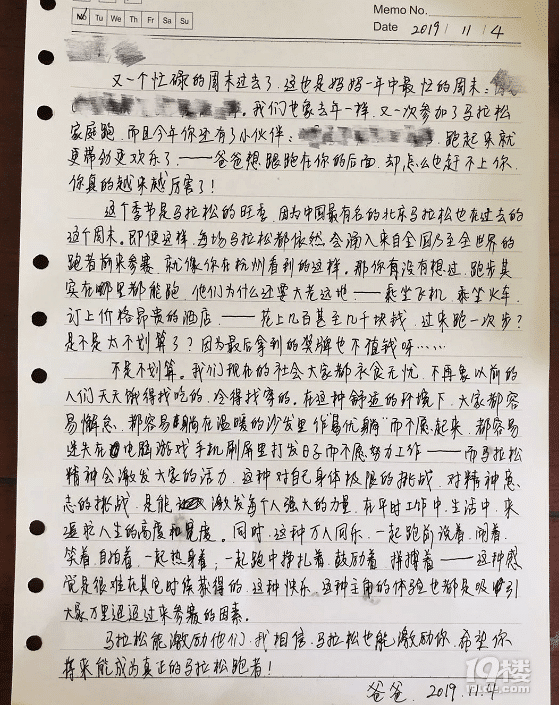 Memo No.
No Mo Tu We Th Fr Sa Su
Date 2019 / 11 / 4
又一个忙碌的周末过去了,这也是妈妈一年中最忙的周末:
。我们也象去年一样,又一次参加了马拉松
家庭跑,而且今年你还有了小伙伴: 跑起来就
更带劲更欢乐了——爸爸想跟跑在你的后面,却怎么也赶不上你,
你真的越来越厉害了!
这个季节是马拉松的旺季,因为中国最有名的北京马拉松也在过去的
这个周末。即便这样,每场马拉松都依然会涌入来自全国乃至全世界的
跑者前来参赛,就像你在杭州看到的这样。那你有没有想过,跑步其
实在哪里都能跑,他们为什么还要大老远地——乘坐飞机,乘坐火车,
订上价格昂贵的酒店,——花上几百甚至几千块钱,过来跑一次步?
是不是太不划算了?因为最后拿到的奖牌也不值钱呀……
不是不划算。我们现在的社会大家都衣食无忧,不再象以前的
人们天天饿得找吃的,冷得找穿的。在这种舒适的环境下,大家都容
易懈怠,都容易躺在温暖的沙发里作"葛优躺"而不愿起来,都容易
迷失在电脑游戏手机刷屏里打发日子而不愿努力工作——而马拉松
精神会激发大家的活力,这种对自己身体极限的挑战,对精神意
志的挑战,是能激发每个人强大的力量,在平时工作中,生活中,来
追求人生的高度和宽度。同时,这种万人同乐,一起跑前说着,闹着,
笑着,自拍着,一起热身着,一起跑中挣扎着,鼓励着,拼搏着——这种感
觉是很难在其它时候获得的,这种快乐,这种主角的体验也都是吸引
大家万里迢迢过来参赛的因素。
马拉松能激励他们,我相信,马拉松也能激励你,希望你
将来能成为真正的马拉松跑者!
爸爸,2019.11.4
19楼